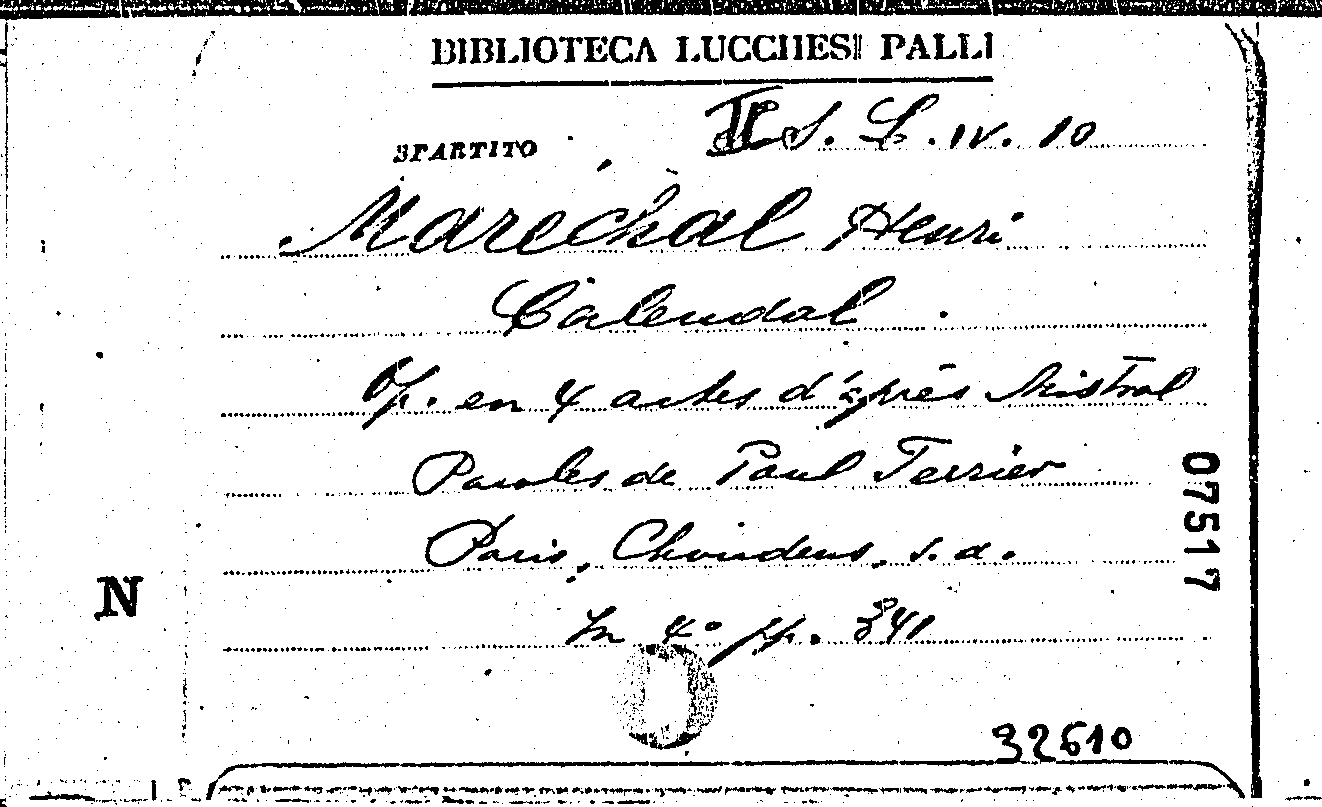 BIBLIOTECA LUCCHESI PALLI
SPARTITO
II S. L. IV. 10
Maréchal Henri
Calendal
Op. en 4 actes d'après Mistral
Paroles de Paul Ferrier
Paris, Choudens, s. a.
In 4° pp. 341
N
07517
32610